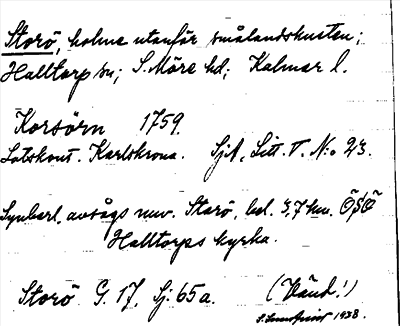 Storö, holme utanför smålandskusten;
Halltorp sn; S. Möre hd; Kalmar l.
Korsörn 1759.
Lotskont. Karlskrona. SjA, Litt. V. N:o 23.
Synbarl. avsågs nuv. Storö, bel. 3,7 km. ÖSÖ
Halltorps kyrka.
Storö G. 17, Sj. 65a. (Vänd!)
1938.